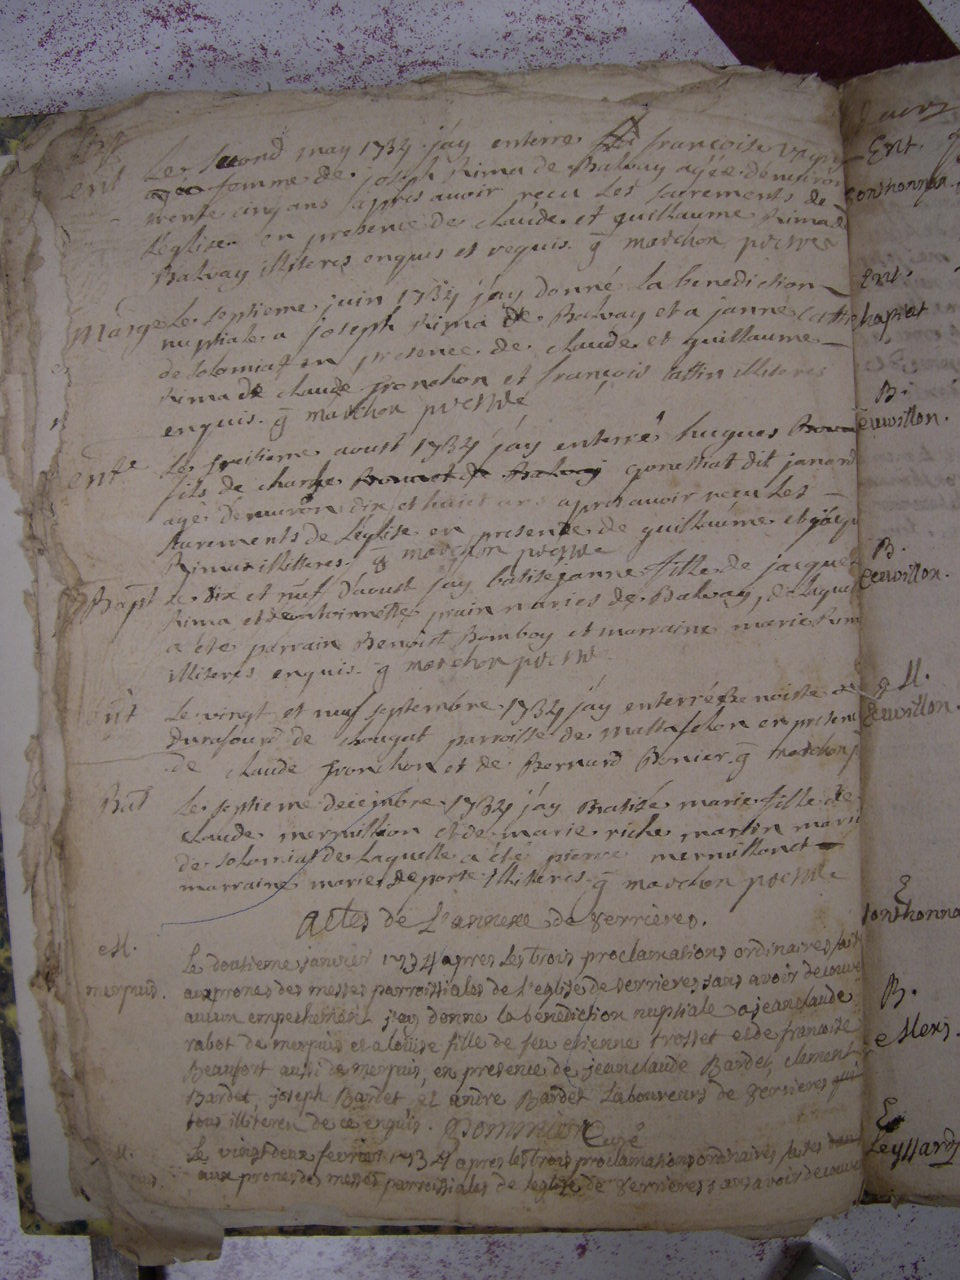 ent Le second may 1734 j'ay enterre françoise
femme de joseph Rima de Balvay agée denviron
trente cinq ans apres avoir recu les sacrements de
l'église en presence de claude et guillaume Rima de
Balvay illiteres enquis et requis. g marchon
mariage Le septieme juin 1734 j'ay donné la benediction
nuptiale a joseph Rima de Balvay et a janne
de Solomiat en presence de claude et guillaume
Rima de claude fronchon et françois illiteres
enquis. g marchon
ent Le aoust 1734 j'ay enterré hugues
fils de charle dit janard
agé denviron dix et huict ans apres avoir recu les
sacrements de l'église en presence de guillaume et
Rima illiteres. g marchon
Bapt Le dix et nuf d'aoust j'ay batisé janne fille de jacque
Rima et d'entoinette mariés de Balvay, de laquelle
a été parrain Benoist Bomboy et marraine marie
illiteres enquis. g marchon
ent Le vingt et nuf septembre 1734 j'ay enterré Benoiste
durafourd de parroisse de mattafelon en presence
de claude fronchon et de Bernard Bonier. g marchon
Bat Le septieme decembre 1734 j'ay Batisé marie fille de
claude mermillion et de marie riche martin mariés
de Solomiat de laquelle a été pierre mermillion et
marraine marie deporte illiteres. g marchon
Actes de L'annexe de Serrieres.
M. Le douzieme janvier 1734 apres les trois proclamations ordinaires faites
merpuis. aux prones des messes parroissiales de l'eglise de Serrieres sans avoir decouvert
aucun empechement j'ay donne la bénédiction nuptiale a jeanclaude
rabot de merpuis et a Louise fille de feu etienne trosset et de francoise
Beaufort aussi de merpuis, en presence de jeanclaude Bardet, clement
Bardet, joseph Bardet et andre Bardet Laboureurs de Serrieres
tous illiteres de ce enquis. Curé
M. Le vingtdeux fevrier 1734 apres les trois proclamations ordinaires faites
aux prones des messes parroissiales de leglise de Serrieres sans avoir decouvert
Ent.
conthonnax.
Ent.
Bi.
ceuvillon.
B.
Ceuvillon.
M.
Ceuvillon.
B.
E
Leyssard